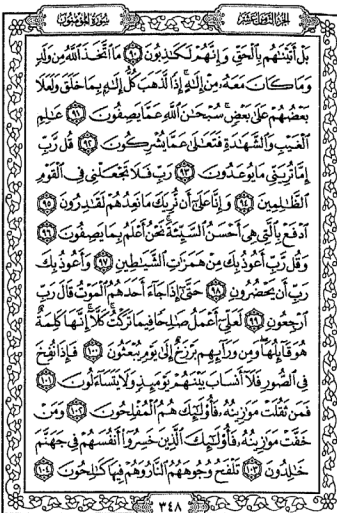 الجزء الثامن عشر سورة المؤمنون
بَلْ أَتَيْنَٰهُم بِٱلْحَقِّ وَإِنَّهُمْ لَكَٰذِبُونَ ٩٠ مَا ٱتَّخَذَ ٱللَّهُ مِن وَلَدٍ
وَمَا كَانَ مَعَهُۥ مِنْ إِلَٰهٍ ۚ إِذًا لَّذَهَبَ كُلُّ إِلَٰهٍۭ بِمَا خَلَقَ وَلَعَلَا
بَعْضُهُمْ عَلَىٰ بَعْضٍ ۚ سُبْحَٰنَ ٱللَّهِ عَمَّا يَصِفُونَ ٩١ عَٰلِمِ
ٱلْغَيْبِ وَٱلشَّهَٰدَةِ فَتَعَٰلَىٰ عَمَّا يُشْرِكُونَ ٩٢ قُل رَّبِّ
إِمَّا تُرِيَنِّي مَا يُوعَدُونَ ٩٣ رَبِّ فَلَا تَجْعَلْنِي فِي ٱلْقَوْمِ
ٱلظَّٰلِمِينَ ٩٤ وَإِنَّا عَلَىٰٓ أَن نُّرِيَكَ مَا نَعِدُهُمْ لَقَٰدِرُونَ ٩٥
ٱدْفَعْ بِٱلَّتِي هِيَ أَحْسَنُ ٱلسَّيِّئَةَ ۚ نَحْنُ أَعْلَمُ بِمَا يَصِفُونَ ٩٦
وَقُل رَّبِّ أَعُوذُ بِكَ مِنْ هَمَزَٰتِ ٱلشَّيَٰطِينِ ٩٧ وَأَعُوذُ بِكَ
رَبِّ أَن يَحْضُرُونِ ٩٨ حَتَّىٰٓ إِذَا جَآءَ أَحَدَهُمُ ٱلْمَوْتُ قَالَ رَبِّ
ٱرْجِعُونِ ٩٩ لَعَلِّيٓ أَعْمَلُ صَٰلِحًا فِيمَا تَرَكْتُ ۚ كَلَّآ ۚ إِنَّهَا كَلِمَةٌ
هُوَ قَآئِلُهَا ۖ وَمِن وَرَآئِهِم بَرْزَخٌ إِلَىٰ يَوْمِ يُبْعَثُونَ ١٠٠ فَإِذَا نُفِخَ
فِي ٱلصُّورِ فَلَآ أَنسَابَ بَيْنَهُمْ يَوْمَئِذٍ وَلَا يَتَسَآءَلُونَ ١٠١
فَمَن ثَقُلَتْ مَوَٰزِينُهُۥ فَأُو۟لَٰٓئِكَ هُمُ ٱلْمُفْلِحُونَ ١٠٢ وَمَنْ
خَفَّتْ مَوَٰزِينُهُۥ فَأُو۟لَٰٓئِكَ ٱلَّذِينَ خَسِرُوٓا۟ أَنفُسَهُمْ فِي جَهَنَّمَ
خَٰلِدُونَ ١٠٣ تَلْفَحُ وُجُوهَهُمُ ٱلنَّارُ وَهُمْ فِيهَا كَٰلِحُونَ ١٠٤
٣٤٨